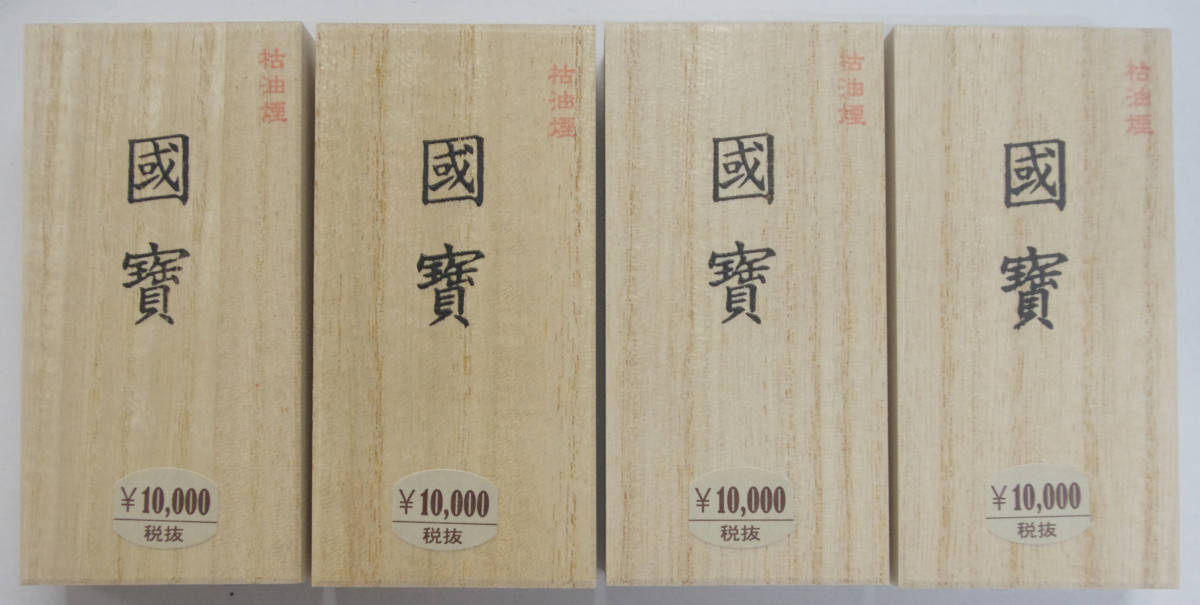 枯油煙
國寶
¥10,000
税抜
枯油煙
國寶
¥10,000
税抜
枯油煙
國寶
¥10,000
税抜
枯油煙
國寶
¥10,000
税抜